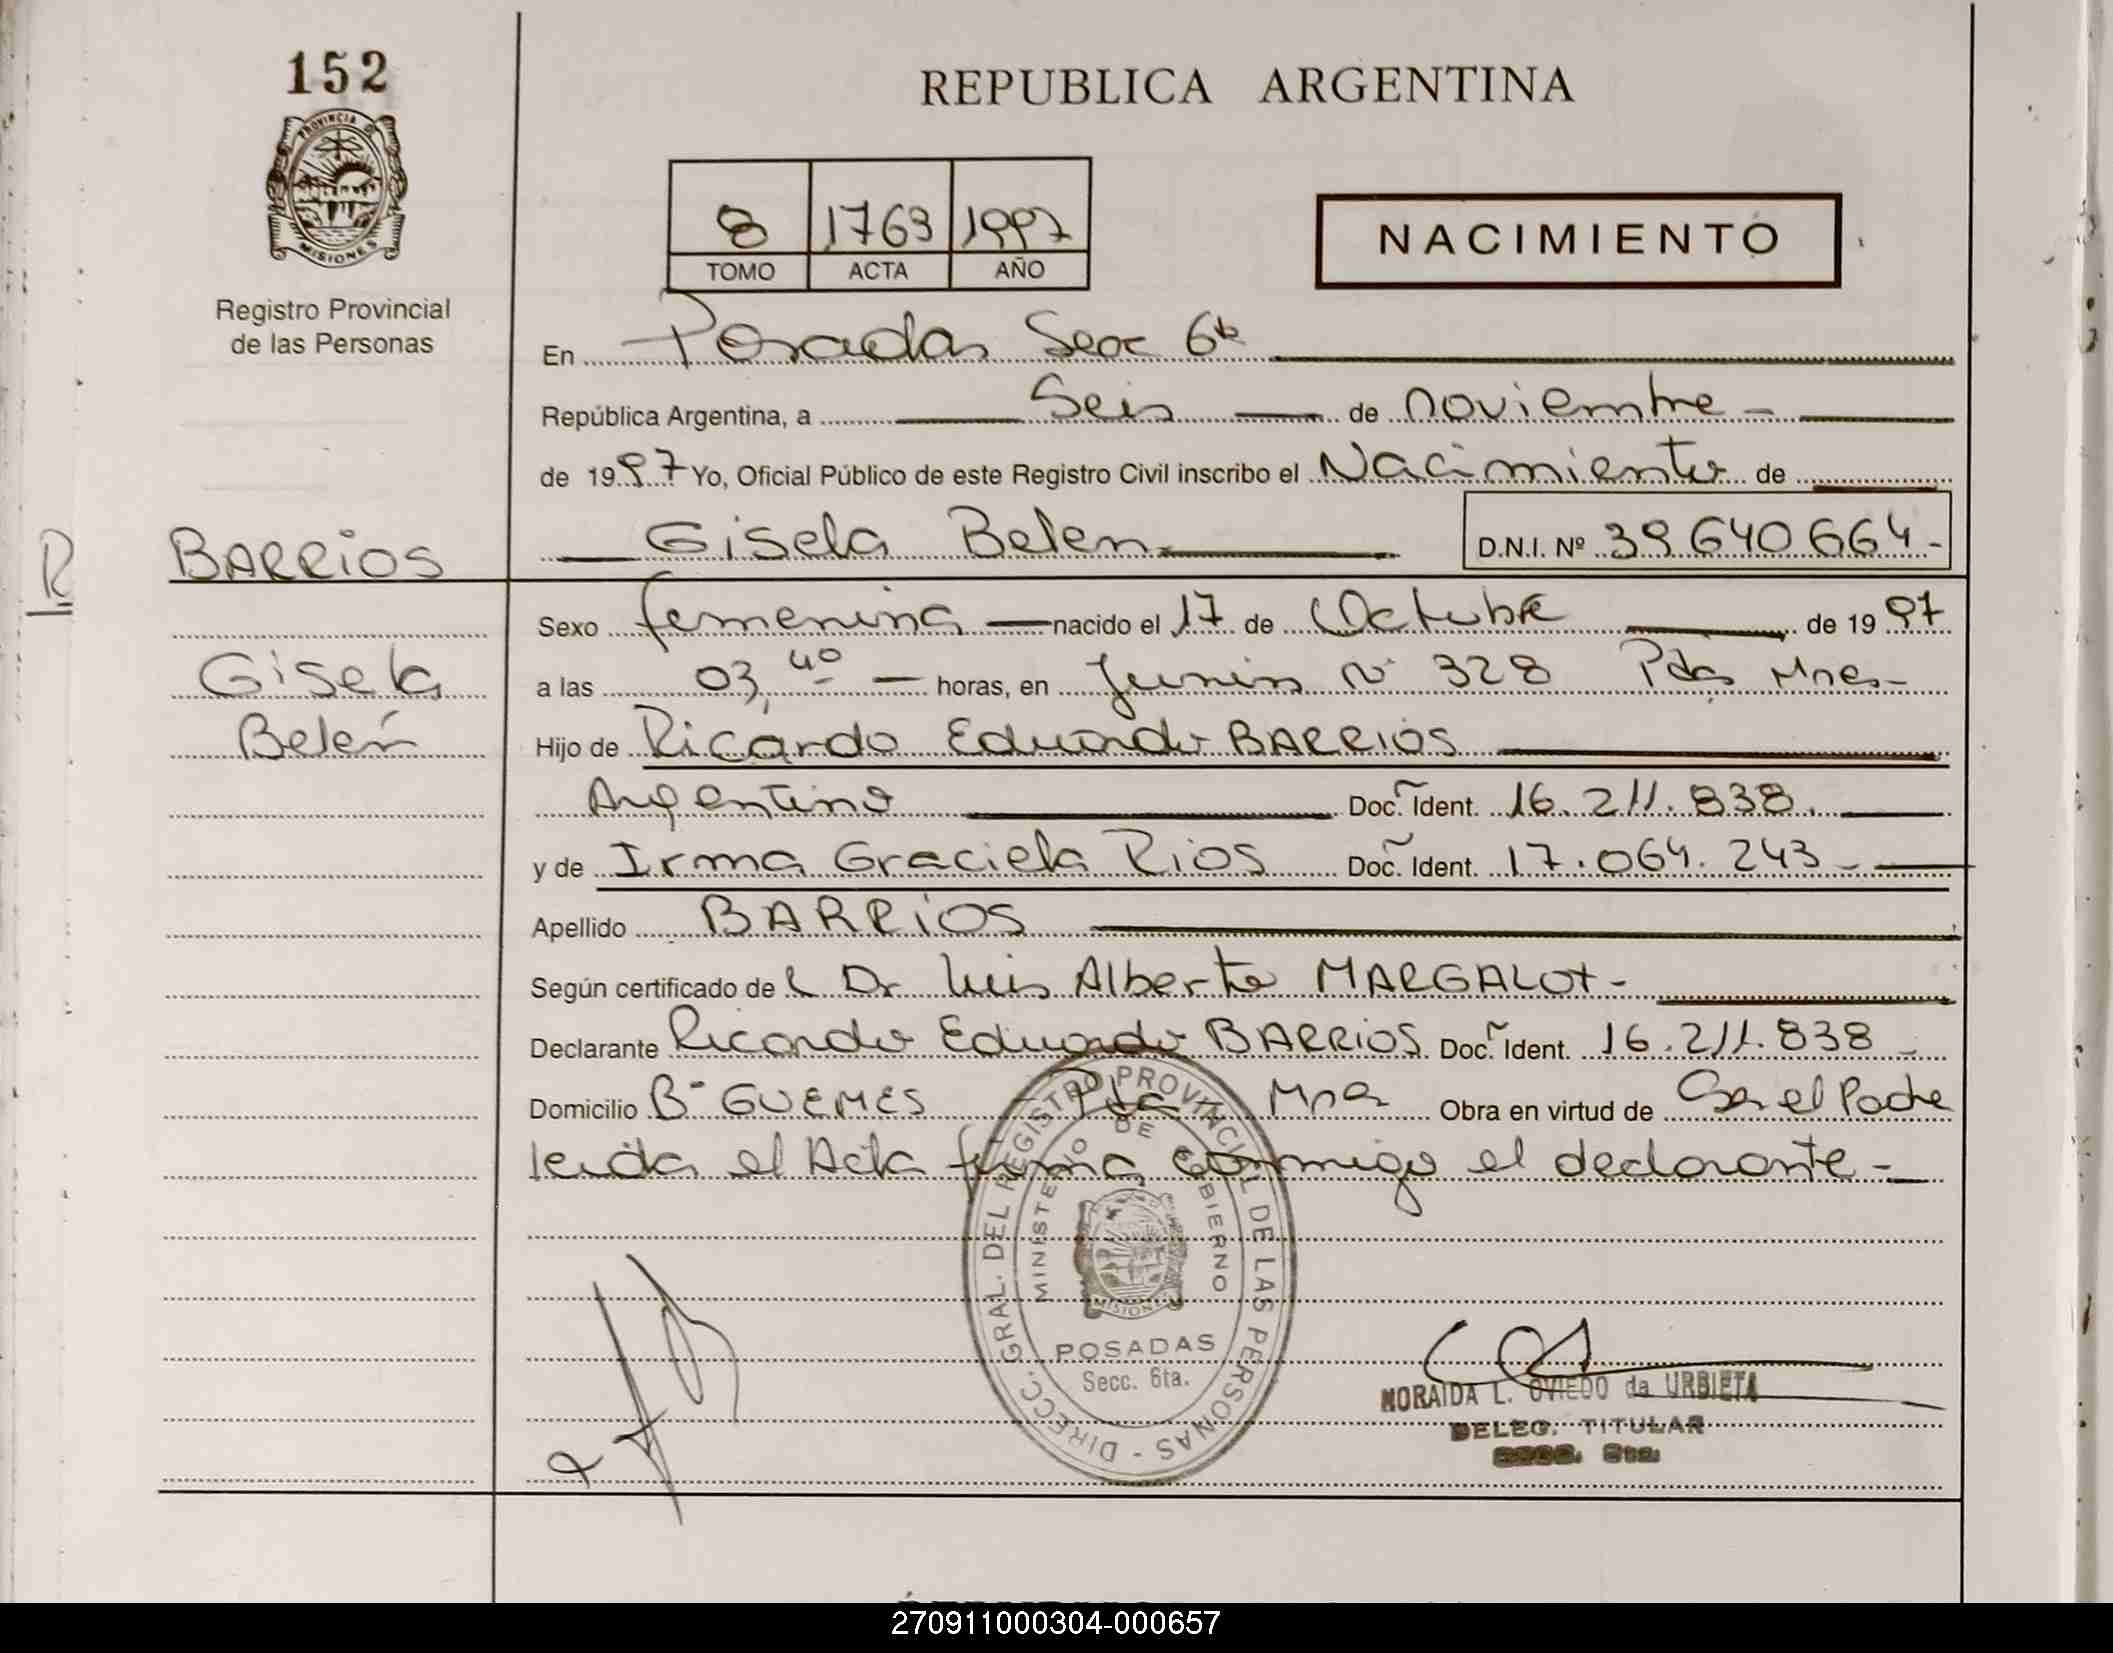 152
PROVINCIA D
MISIONES
Registro Provincial
de las Personas
REPUBLICA ARGENTINA
8 1769 1997
TOMO ACTA AÑO
NACIMIENTO
En Posadas Secc 6ta
República Argentina, a Seis de noviembre
de 1997 Yo, Oficial Público de este Registro Civil inscribo el Nacimiento de
R BARRIOS
Gisela Belen D.N.I. Nº 39640664
Sexo femenina nacido el 17 de Octubre de 1997
Gisela
a las 03,40 horas, en Junin Nº 328 Pdas Mnes
Belén
Hijo de Ricardo Eduardo BARRIOS
Argentino Doc. Ident. 16.211.838
y de Irma Graciela Rios Doc. Ident. 17.064.243
Apellido BARRIOS
Según certificado del Dr Luis Alberto MARGALOT
Declarante Ricardo Eduardo BARRIOS Doc. Ident. 16.211.838
Domicilio Bº GUEMES Mnes Obra en virtud de Ser el Padre
leida el Acta firma conmigo el declarante
DIRECC. GRAL. DEL REGISTRO PROVINCIAL DE LAS PERSONAS -
MINISTERIO DE GOBIERNO
MISIONES
POSADAS
Secc. 6ta.
NORAIDA L. OVIEDO de URBIETA
DELEG. TITULAR
SECC. 6ta.
270911000304-000657